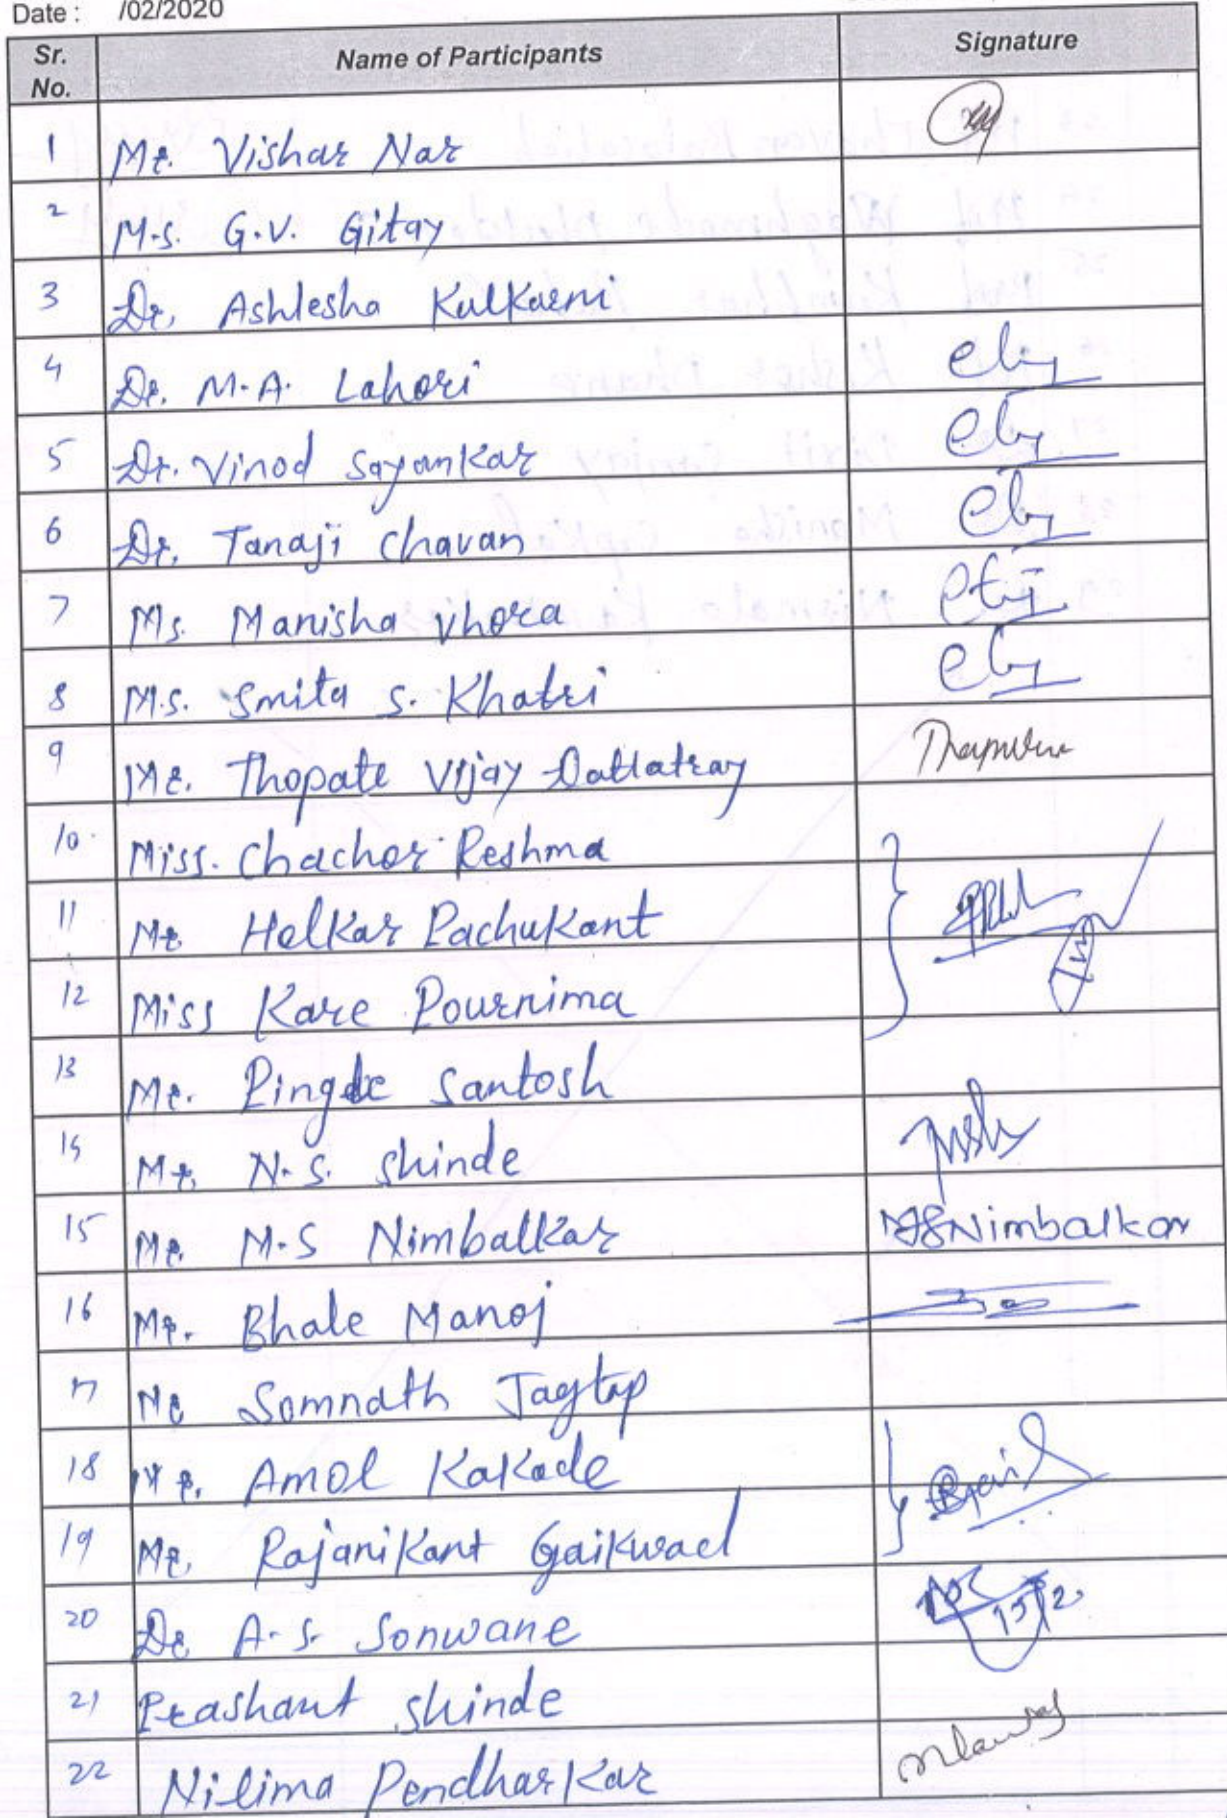 Date : /02/2020
Sr. No. Name of Participants Signature
1 Mr. Vishar Nar
2 M.s. G.V. Gitay
3 Dr. Ashlesha Kulkarni
4 Dr. M.A. Lahori
5 Dr. Vinod Sayankar
6 Dr. Tanaji Chavan
7 Ms. Manisha Vhora
8 M.s. Smita S. Khatri
9 Mr. Thopate Vijay Dattatray
10 Miss. Chachor Reshma
11 Mr Holkar Rachukant
12 Miss Kare Pournima
13 Mr. Pingle Santosh
14 Mr. N.S. Shinde
15 Mr. M.S Nimbalkar MSNimbalkar
16 Mr. Bhale Manoj
17 Mr Somnath Jagtap
18 Mr. Amol Kakade
19 Mr. Rajanikant Gaikwad
20 Dr A.S. Sonwane
21 Prashant Shinde
22 Nilima Pendharkar